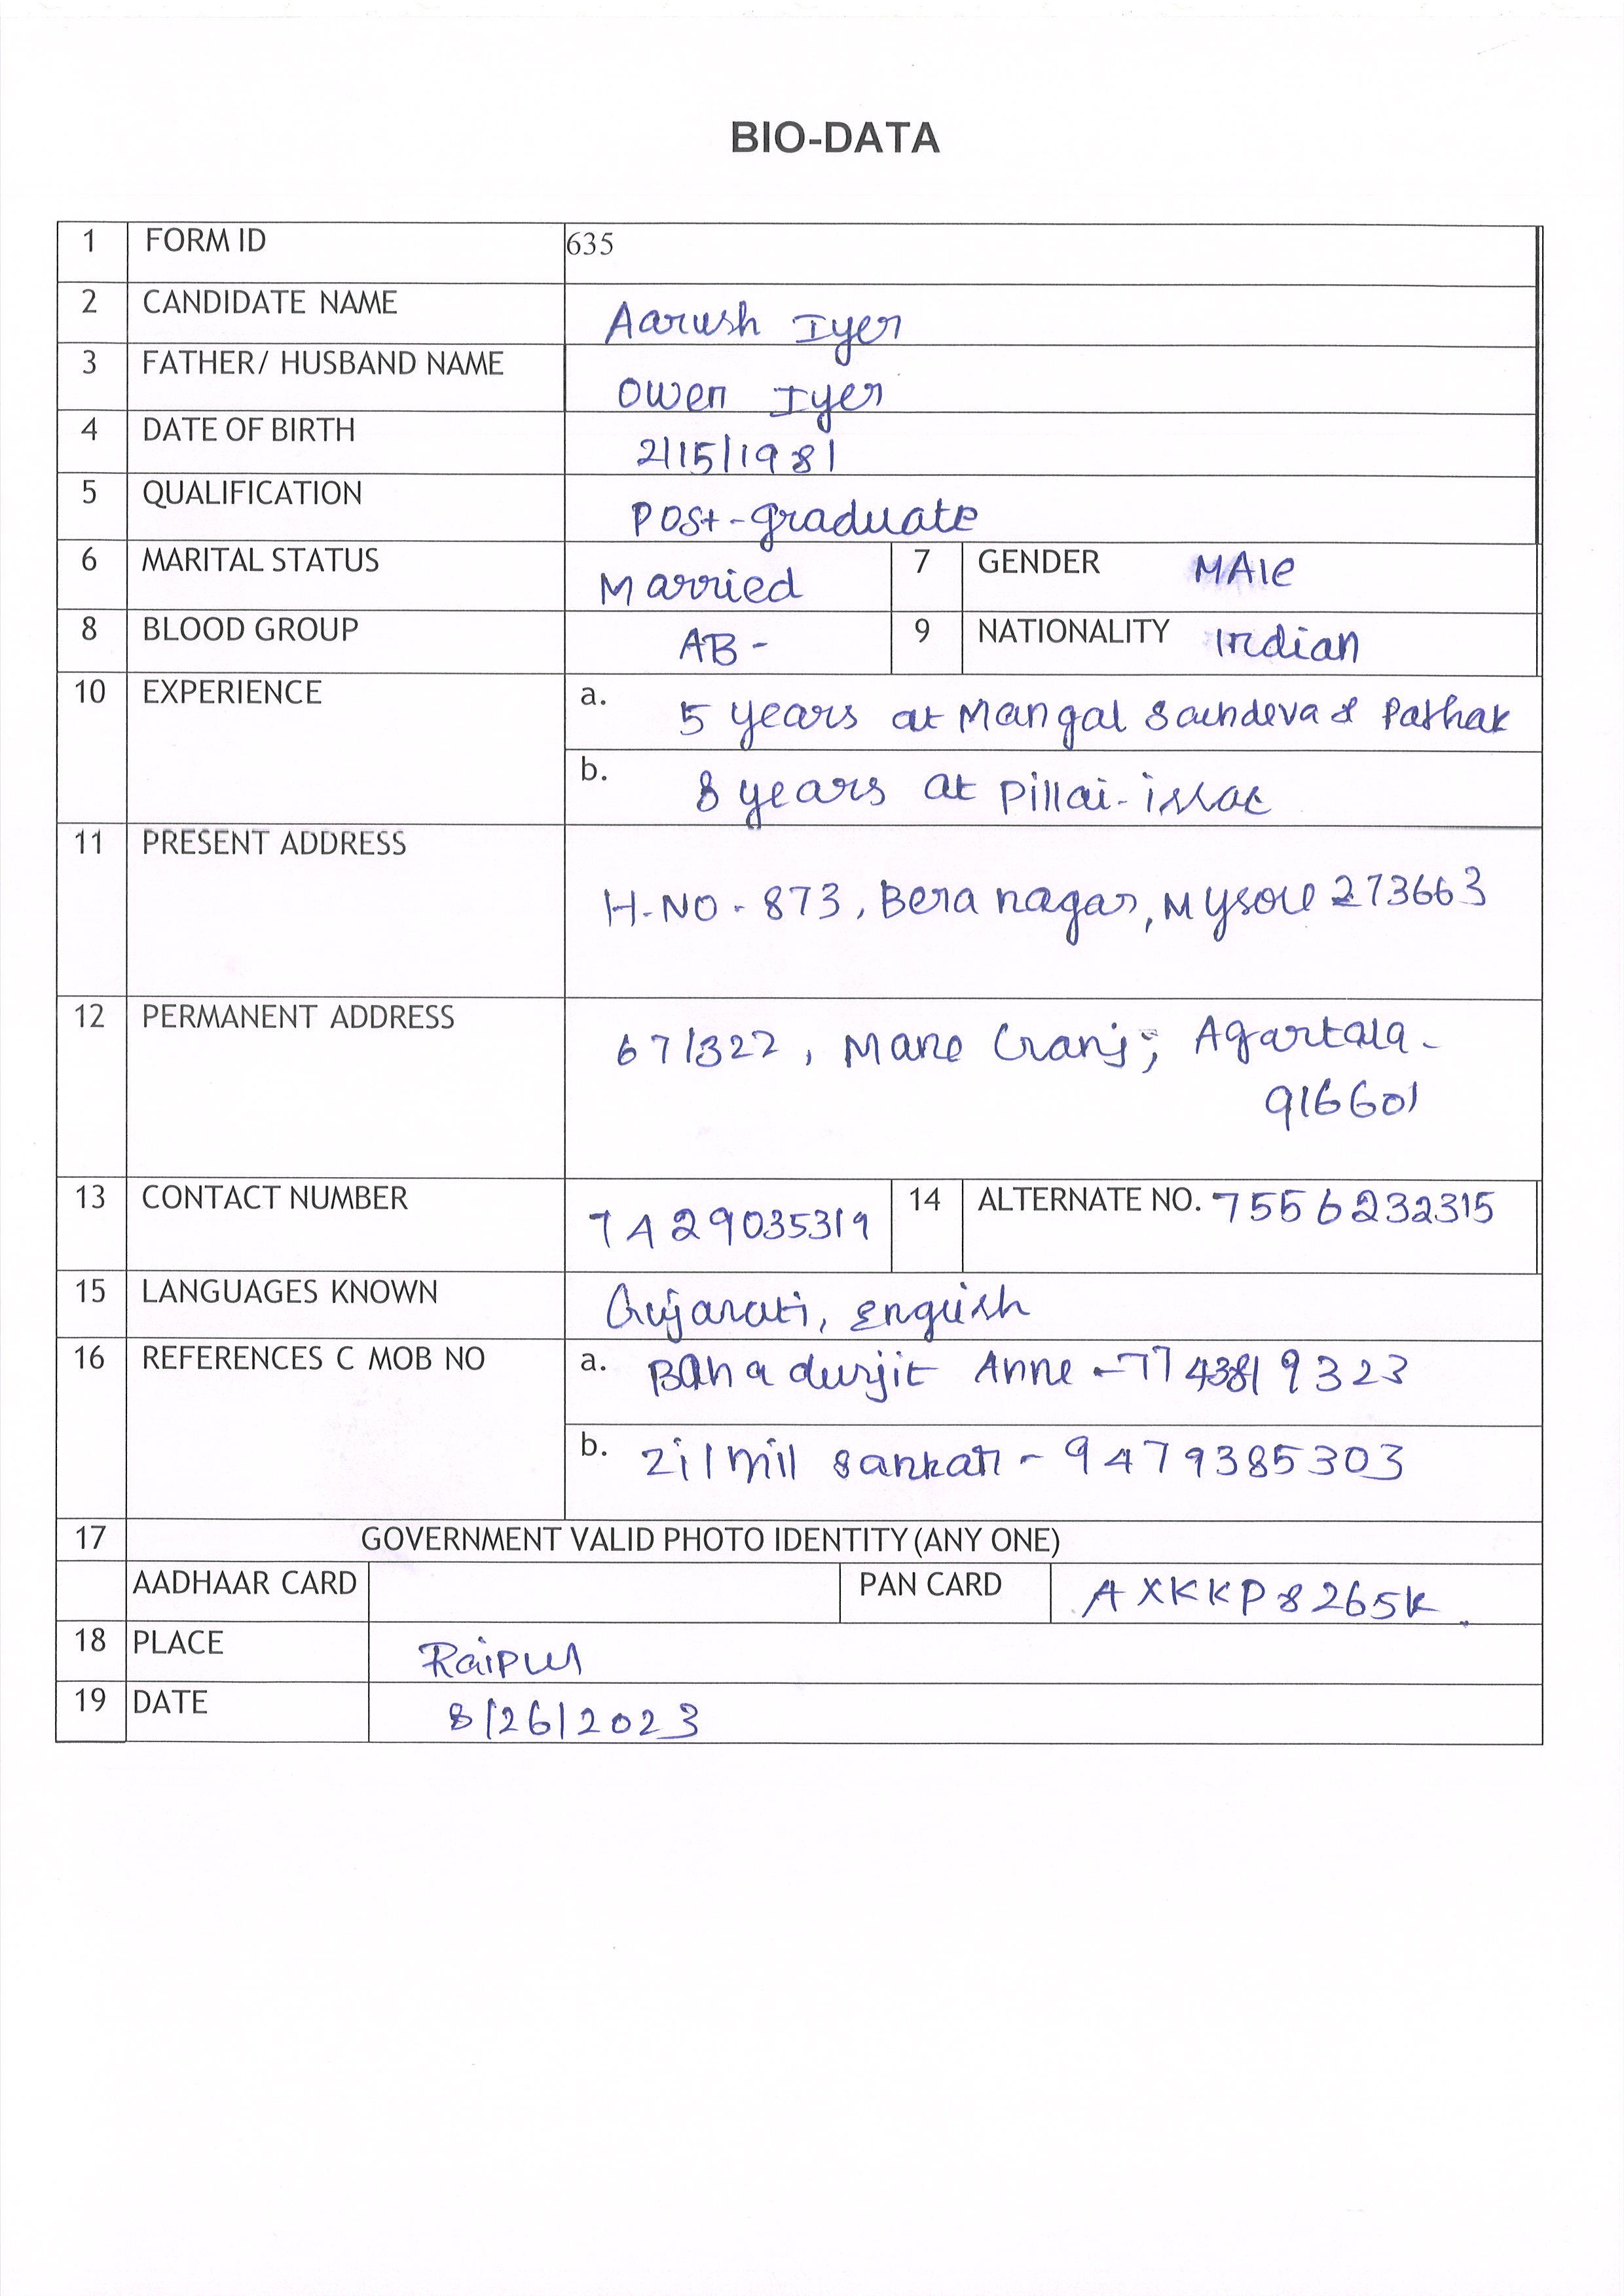 BIO-DATA
1 FORM ID 635
2 CANDIDATE NAME Aarush Iyer
3 FATHER/ HUSBAND NAME Owen Iyer
4 DATE OF BIRTH 2/15/1981
5 QUALIFICATION Post-graduate
6 MARITAL STATUS Married 7 GENDER MAle
8 BLOOD GROUP AB- 9 NATIONALITY Indian
10 EXPERIENCE a. 5 years at Mangal Sachdeva & Pathak
b. 8 years at Pillai-issac
11 PRESENT ADDRESS
H-NO-873, Bera nagar, Mysore 273663
12 PERMANENT ADDRESS 67/322, Mane Ganj, Agartala-
916601
13 CONTACT NUMBER 7429035319 14 ALTERNATE NO. 7556232315
15 LANGUAGES KNOWN Gujarati, English
16 REFERENCES C MOB NO a. Bahadurjit Anne - 7743819323
b. Zilmil Sankar - 9479385303
17 GOVERNMENT VALID PHOTO IDENTITY (ANY ONE)
AADHAAR CARD PAN CARD AXKKP8265K
18 PLACE Raipur
19 DATE 8/26/2023